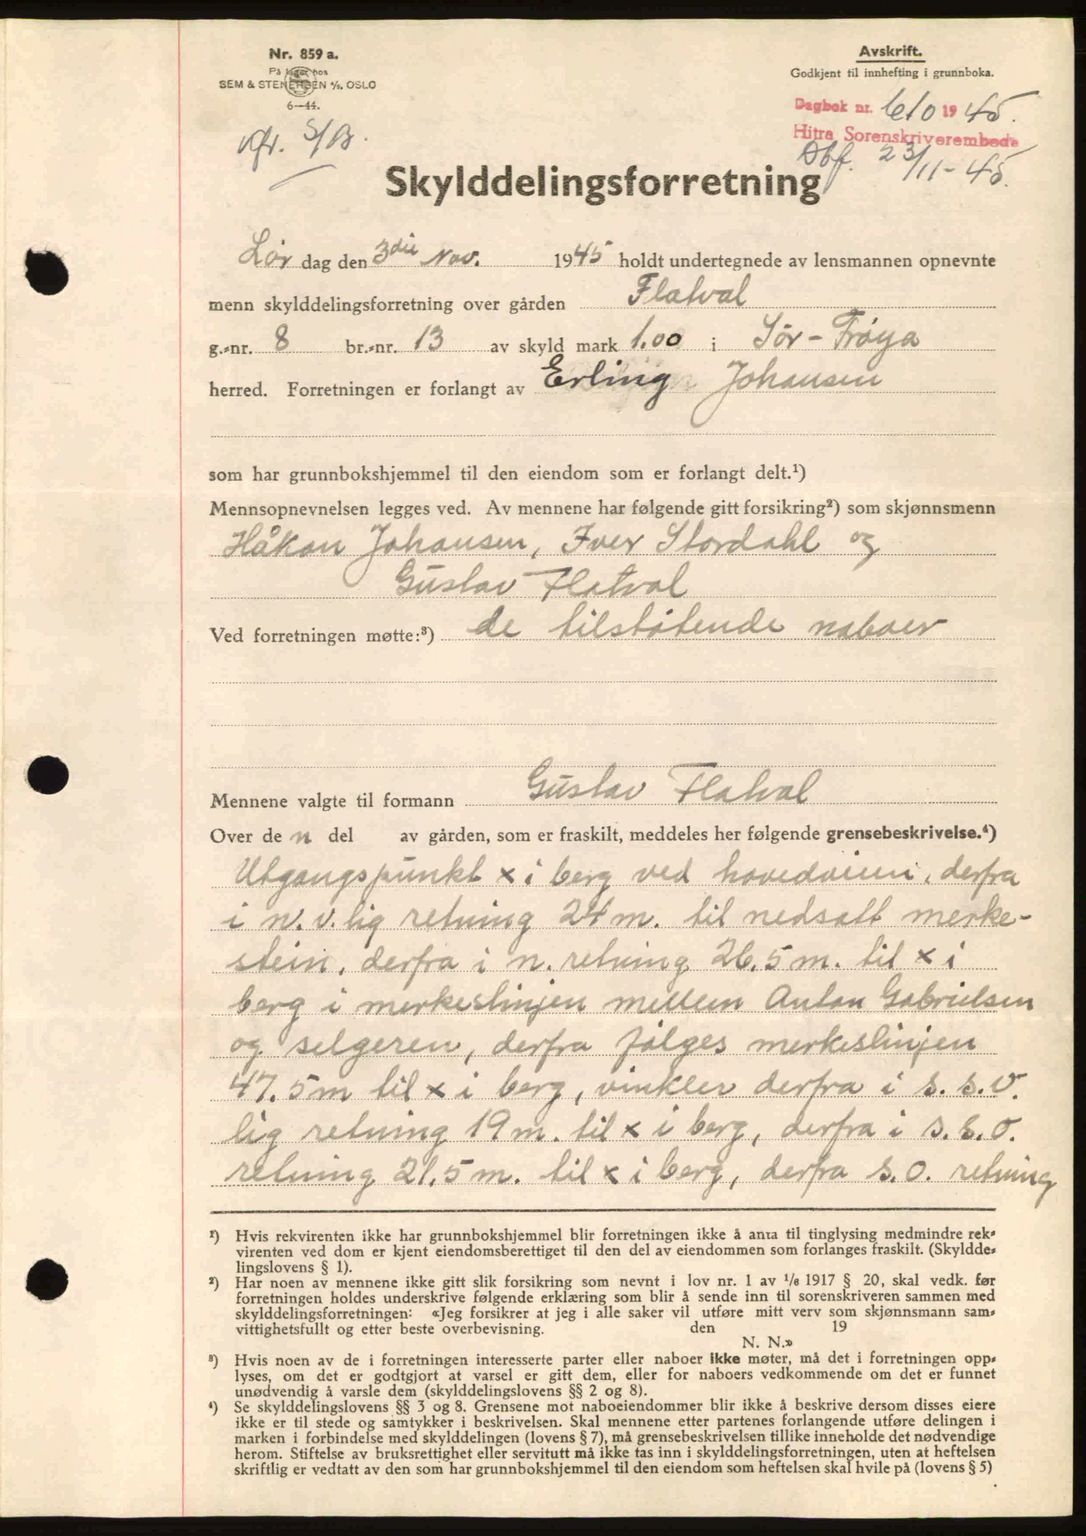 Nr. 859 a.
På lager hos
SEM & STENERSEN A/S. OSLO
6—44.
Avskrift.
Godkjent til innhefting i grunnboka.
Dagbok nr. 610 1945.
Hitra Sorenskriverembede
Dbf. 23/11-45.
Skylddelingsforretning
Lør dag den 3die Nov. 1945 holdt undertegnede av lensmannen opnevnte
menn skylddelingsforretning over gården Flatval
g.-nr. 8 br.-nr. 13 av skyld mark 1.00 i Sör-Fröya
herred. Forretningen er forlangt av Erling Johansen
som har grunnbokshjemmel til den eiendom som er forlangt delt.¹)
Mennsopnevnelsen legges ved. Av mennene har følgende gitt forsikring²) som skjønnsmenn
Håkon Johansen, Iver Stordahl og
Gustav Flatval
Ved forretningen møtte:³) de tilstøtende naboer
Mennene valgte til formann Gustav Flatval
Over de n del av gården, som er fraskilt, meddeles her følgende grensebeskrivelse.⁴)
Utgangspunkt x i berg ved hovedveien, derfra
i n.v.lig retning 24 m. til nedsatt merke-
stein, derfra i n. retning 26.5 m. til x i
berg i merkeslinjen mellem Anton Gabrielsen
og selgeren, derfra følges merkeslinjen
47.5 m til x i berg, vinkler derfra i s.s.v.
lig retning 19 m. til x i berg, derfra i s.s.o.
retning 21.5 m. til x i berg, derfra s.o. retning
¹) Hvis rekvirenten ikke har grunnbokshjemmel blir forretningen ikke å anta til tinglysing medmindre rek-
virenten ved dom er kjent eiendomsberettiget til den del av eiendommen som forlanges fraskilt. (Skyldde-
lingslovens § 1).
²) Har noen av mennene ikke gitt slik forsikring som nevnt i lov nr. 1 av 1/6 1917 § 20, skal vedk. før
forretningen holdes underskrive følgende erklæring som blir å sende inn til sorenskriveren sammen med
skylddelingsforretningen: «Jeg forsikrer at jeg i alle saker vil utføre mitt verv som skjønnsmann sam-
vittighetsfullt og etter beste overbevisning. den 19
N. N.»
³) Hvis noen av de i forretningen interesserte parter eller naboer ikke møter, må det i forretningen opp-
lyses, om det er godtgjort at varsel er gitt dem, eller for naboers vedkommende om det er funnet
unødvendig å varsle dem (skylddelingslovens §§ 2 og 8).
⁴) Se skylddelingslovens §§ 3 og 8. Grensene mot naboeiendommer blir ikke å beskrive dersom disses eiere
ikke er til stede og samtykker i beskrivelsen. Skal mennene etter partenes forlangende utføre delingen i
marken i forbindelse med skylddelingen (lovens § 7), må grensebeskrivelsen tillike inneholde det nødvendige
herom. Stiftelse av bruksrettighet eller servitutt må ikke tas inn i skylddelingsforretningen, uten at heftelsen
skriftlig er vedtatt av den som har grunnbokshjemmel til den eiendom som heftelsen skal hvile på (lovens § 5)